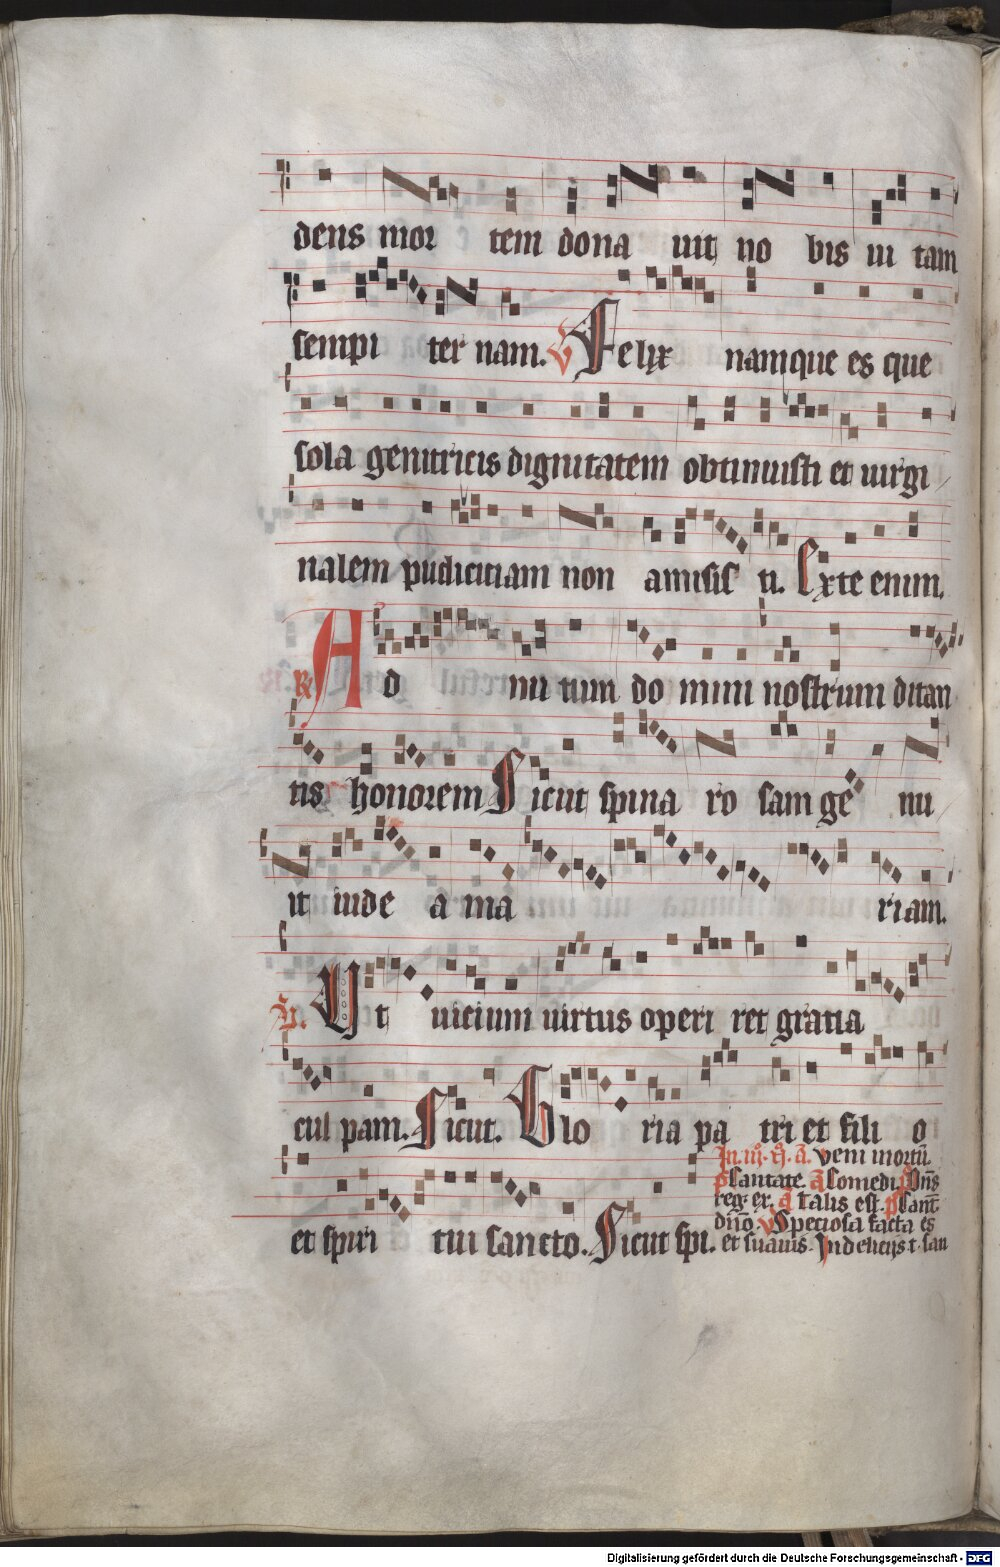 dens mor tem dona uit no bis ui tam
sempi ter nam. V Felix namque es que
sola genitricis dignitatem obtinuisti et uirgi
nalem pudicitiam non amisis ti. Exte enim.
R Ad nu tum do mini nostrum ditan
tis honorem Sicut spina ro sam ge nu
it iude a ma riam.
V. Vt uicium uirtus operi ret gratia
cul pam. Sicut. Glo ria pa tri et fili o
et spiri tui sancto. Sicut spi.
veni mortu
p̄s Cantate. a Comedi. p̄s Dn̄s
reg. ex. a Talis est. p̄s Cant̄
dn̄o. V Speciosa facta es
et suauis. Indelicijs t. san
Digitalisierung gefördert durch die Deutsche Forschungsgemeinschaft - DFG